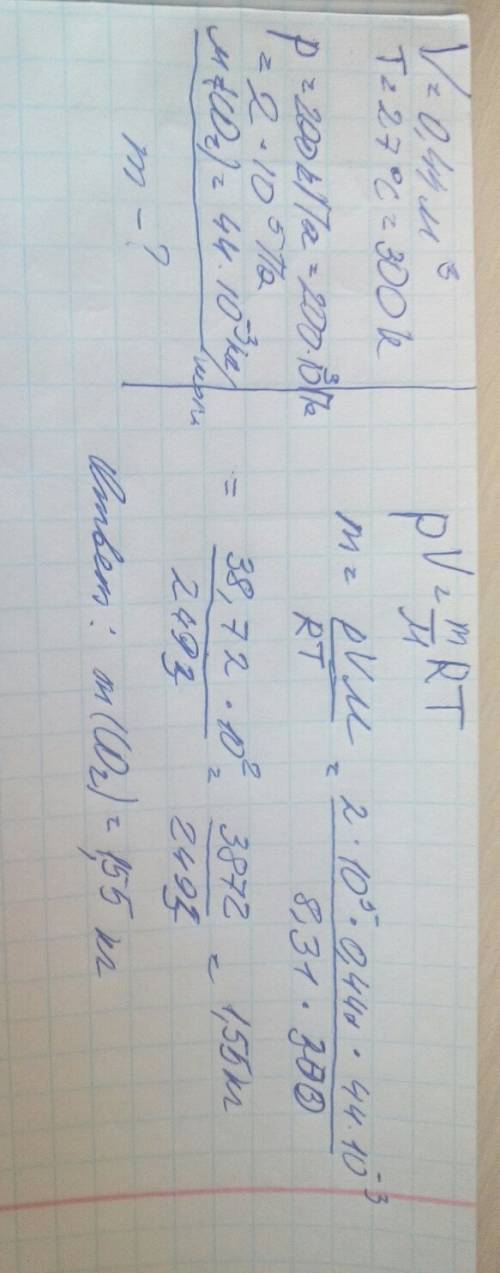 V = 0,44 м³
T = 27°C = 300 К
p = 200 кПа = 200·10³ Па
= 2·10⁵ Па
M(CO₂) = 44·10⁻³ кг/моль
m - ?
pV = m/M RT
m = pVM/RT = 2·10⁵·0,44·44·10⁻³/8,31·300
= 38,72·10²/2493 = 3872/2493 = 1,55 кг
Ответ: m(CO₂) = 1,55 кг